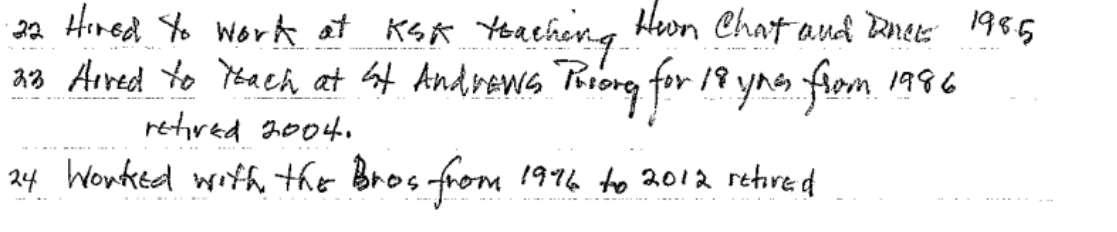 22 Hired to work at KSK teaching Hwn Chant and Dnce 1985
23 Hired to Teach at St Andrews Priory for 18 yrs from 1986
retired 2004.
24 Worked with the Bros from 1976 to 2012 retired